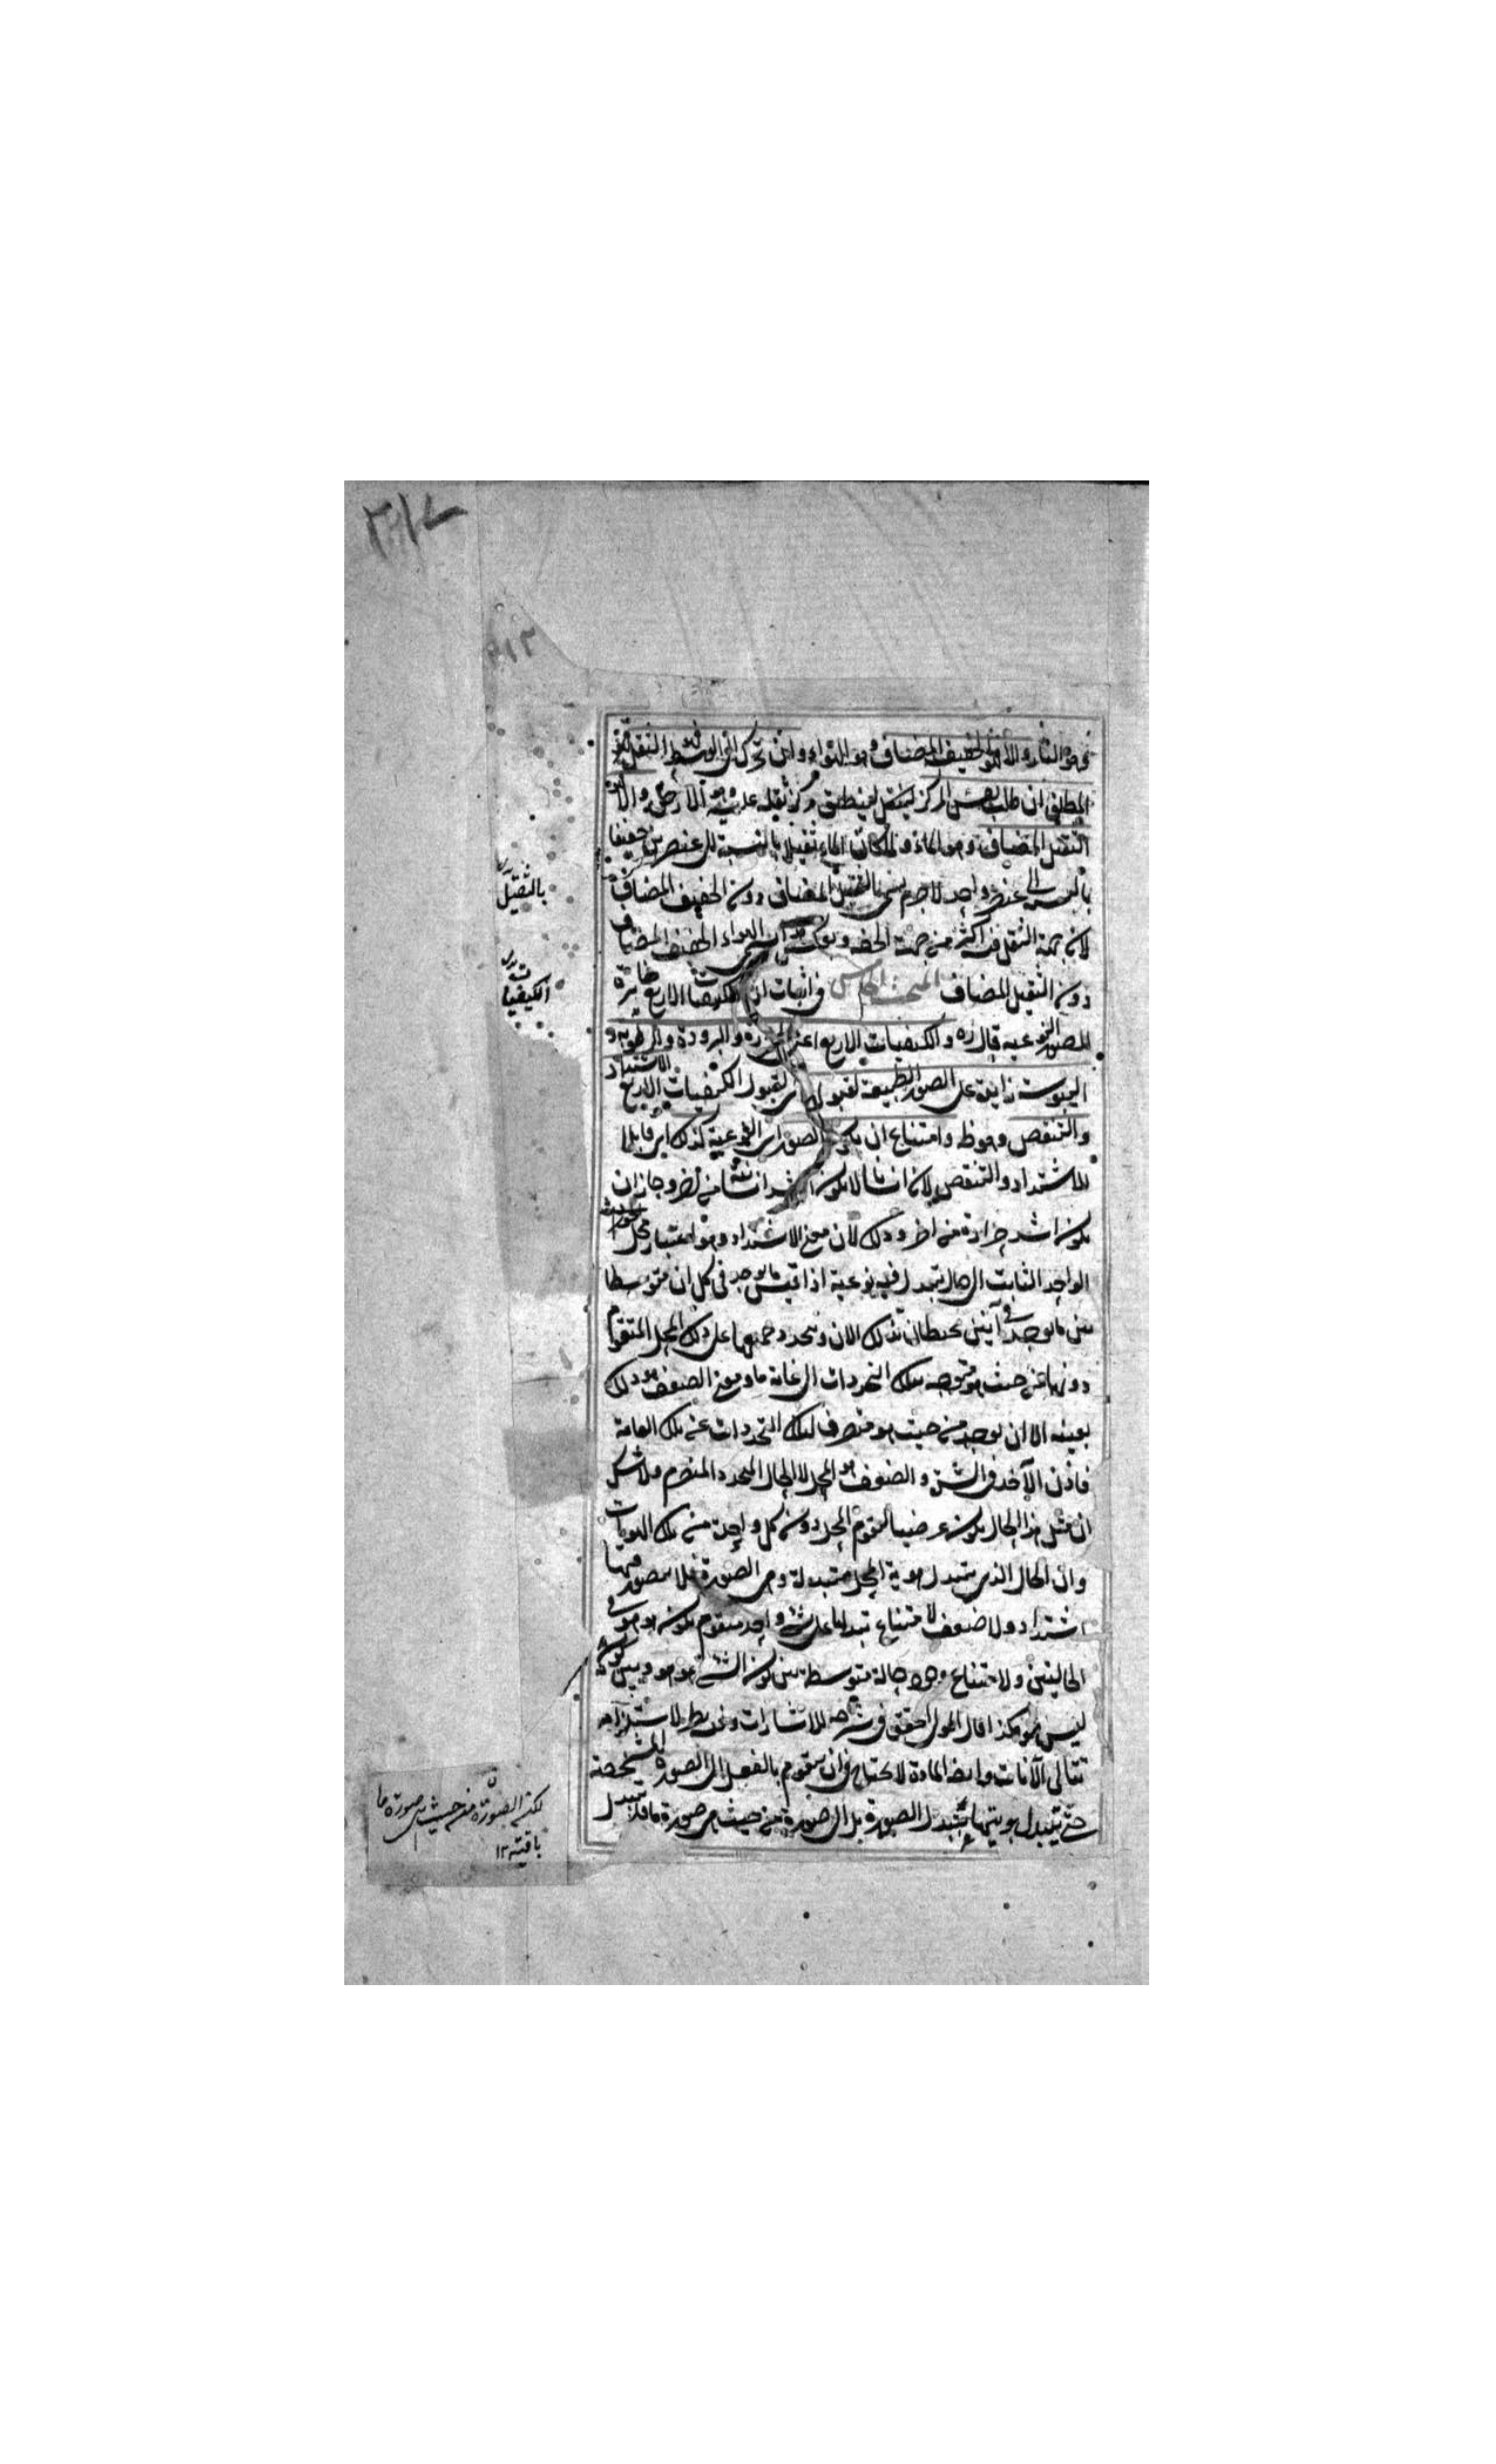 فهو النار والا فهو الخفيف المضاف وهو الهواء وان تحرك الى الوسط فهو الثقيل
المطلق ان طلب نفس المركز لينطبق مركز ثقله عليه وهو الارض والا فهو
الثقيل المضاف وهو الماء ولما كان الماء ثقيلا بالنسبة الى عنصرين خفيفا
بالنسبة الى عنصر واحد لا جرم سمى بالثقيل المضاف دون الخفيف المضاف
لان جهة الثقل فيه اكثر من جهة الخفة وبعكسه الهواء الخفيف المضاف
دون الثقيل المضاف المبحث الخامس فى اثبات ان الكيفيات الاربع مغايرة
للصور النوعية قال ره والكيفيات الاربع اعنى الحرارة والبرودة والرطوبة و
اليبوسة زايدة على الصور الطبيعية لقبول اى لقبول الكيفيات الاربع الاشتداد
والتنقص وهو ظ وامتناع ان يكون الصور اى النوعية كذلك اى قابلا
للاشتداد والتنقص لان انسانا لا يكون اشد انسانية من اخر وجاز ان
يكون اشد حرارة من اخر وذلك لان معنى الاشتداد هو اعتبار محل
الواحد الثابت الى حال يتبدل فيه نوعية اذا قيس ما يوجد فى كل ان متوسطا
بين ما يوجد فى آنين يحيطان بذلك الان ويتجدد جميعها على ذلك المحل المتقوم
دونها من حيث هو متوجه بتلك التجددات الى غاية ما ومعنى الضعف هو ذلك
بعينه الا ان يوجد من حيث هو منصرف بتلك التجددات عن تلك الغاية
فاذن الآخذ فى الشدة والضعف هو المحل لا الحال المتجدد المنصرم ولا شك
ان مثل هذا الحال يكون عرضيا لتقوم المحل دون كل واحدة من تلك الهويات
وان الحال الذى يتبدل هوية المحل متبدلة وهى الصورة فلا يتصور فيها
اشتداد ولا ضعف لامتناع تبدلها على شئ واحد متقوم يكون هو هو فى
الحالين ولامتناع وجود حالة متوسطة بين كون الشئ هو هو وبين كونه
ليس هو هكذا قال المولى المحقق فى شرحه للاشارات
تتالى الآنات وايضا المادة لا تحتاج فى ان يتقوم بالفعل الى الصورة المشخصة
حتى يتبدل هويتها بتبدل الصورة بل الى صورة من حيث هى صورة ما فلا يتبدل
بالثقيل
الكيفيات
لكن الصورة من حيث هى صورة ما
باقية ١٢